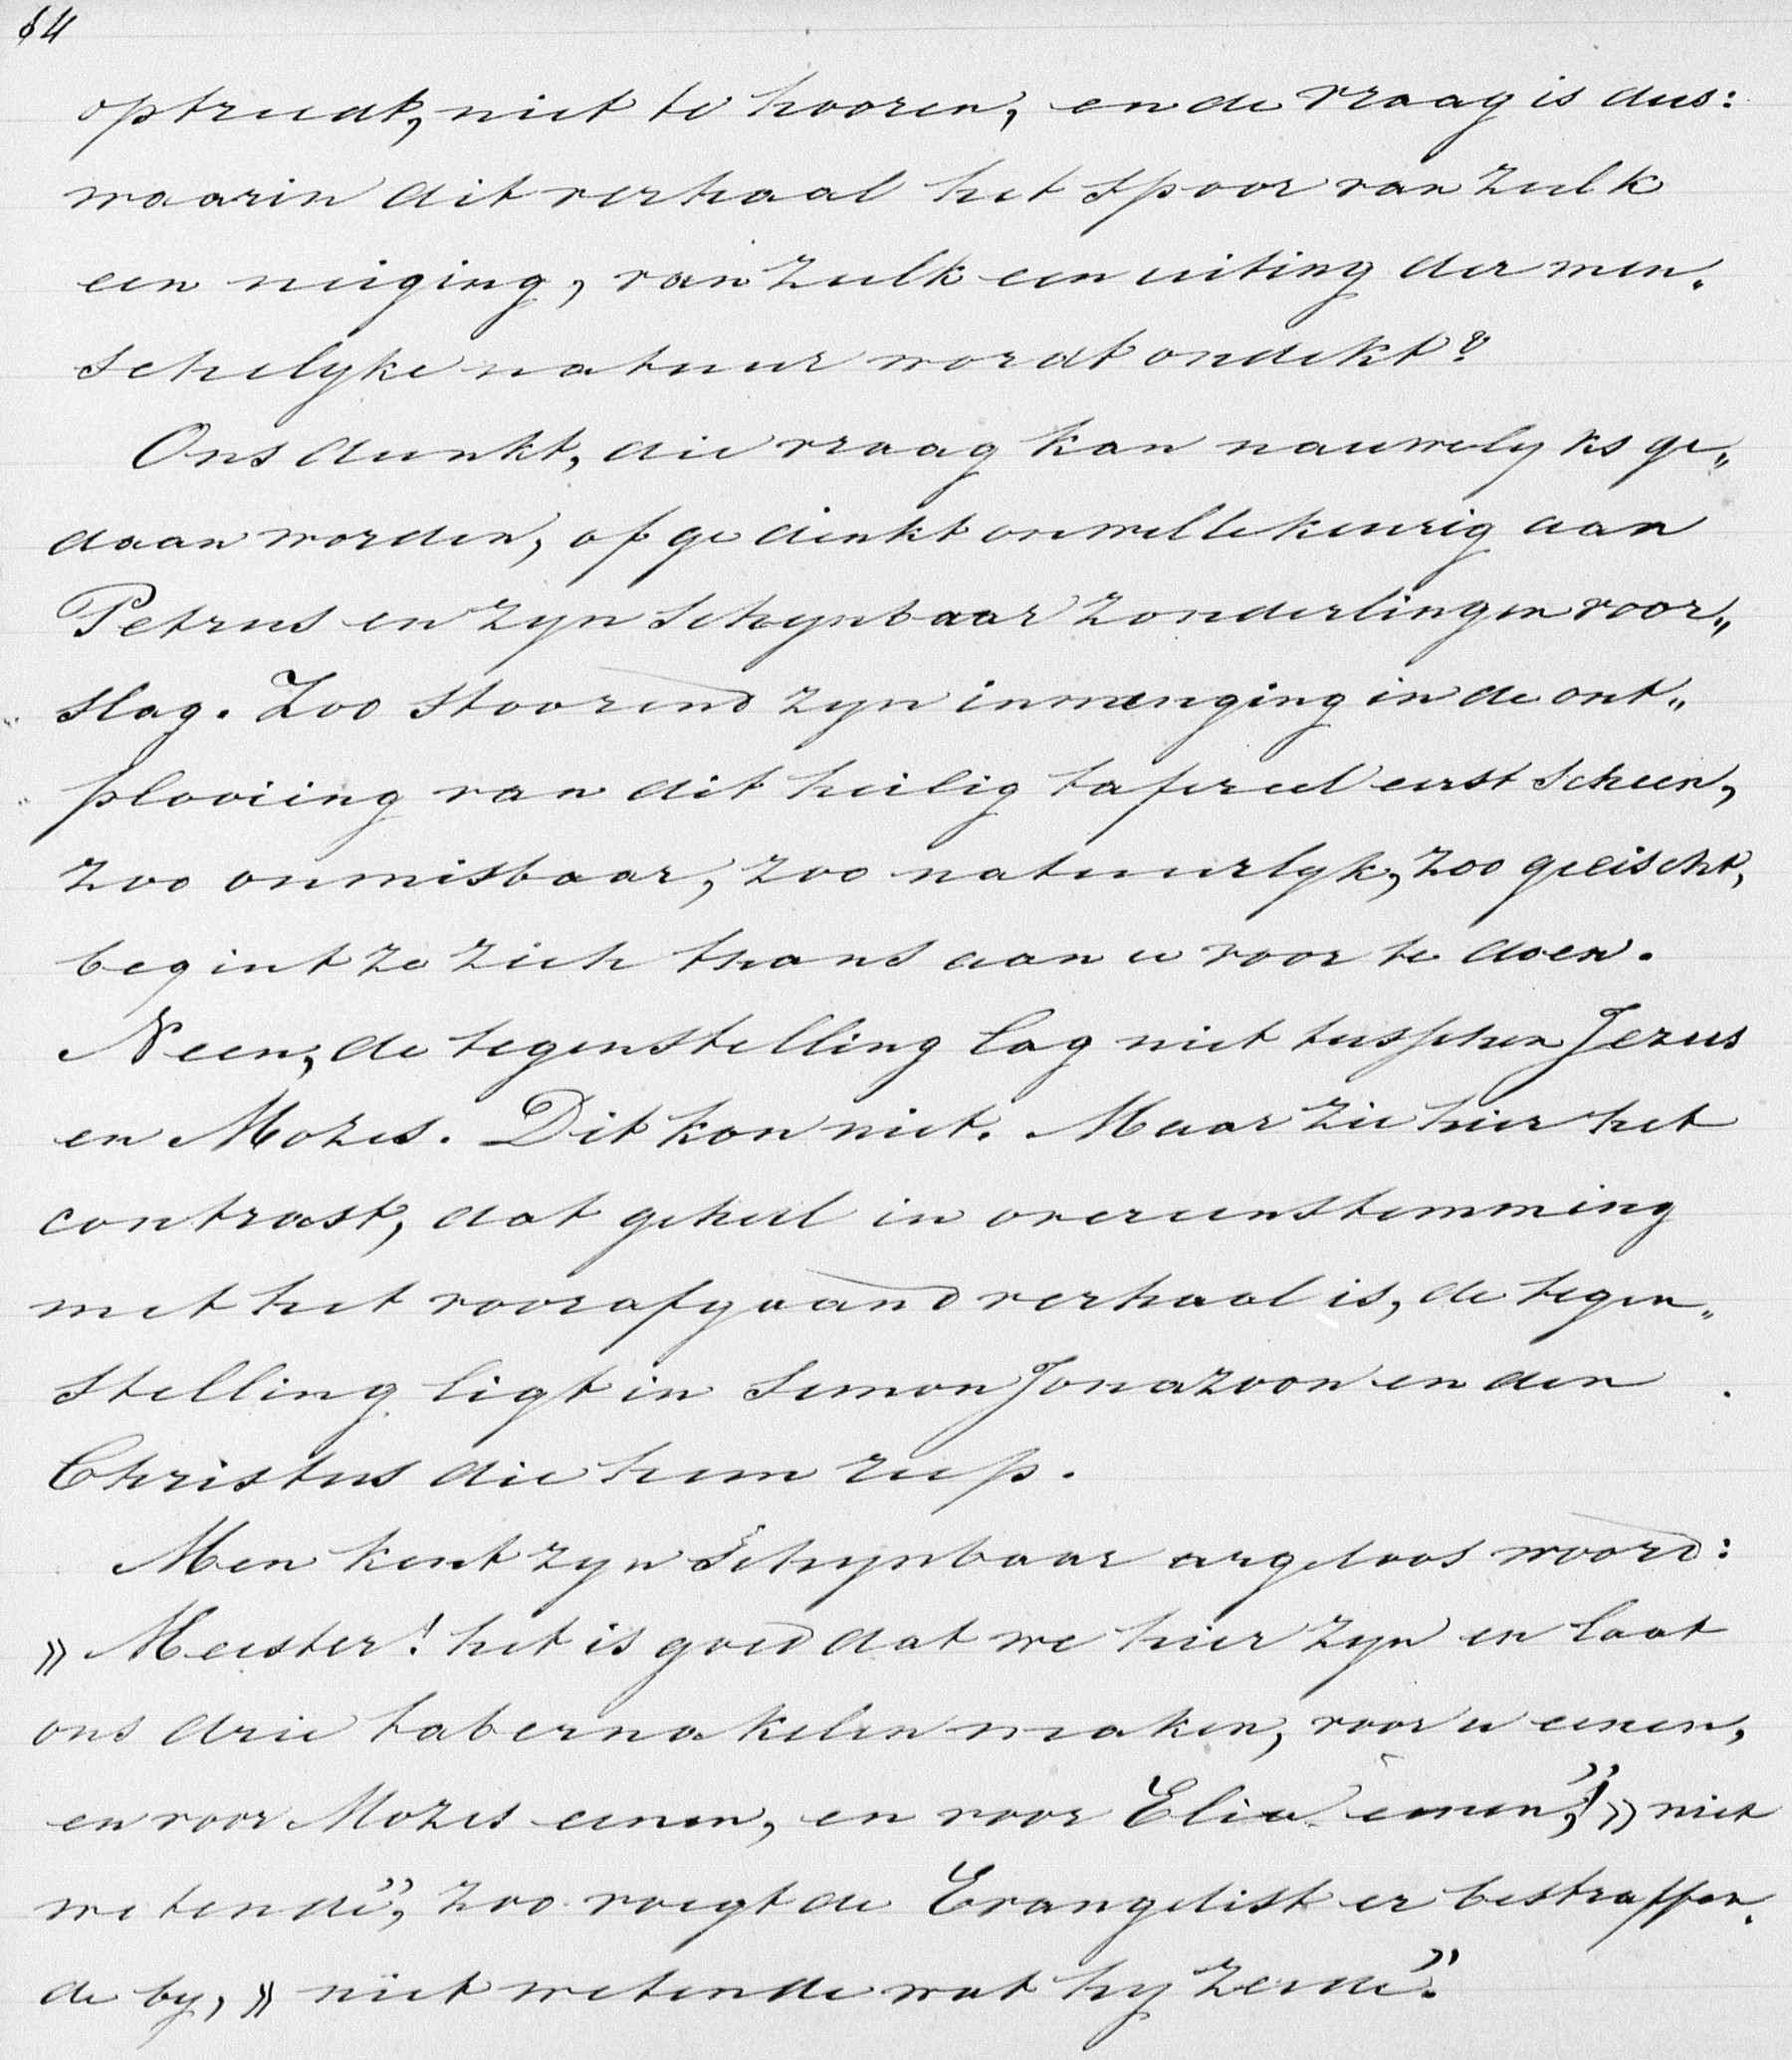 64
optreedt, niet te hooren, en de vraag is dus:
waar in dit verhaal het spoor van zulk
een neiging, van zulk een uiting der men„
schelyke natuur wordt ondekt?
Ons dunkt, die vraag kan nauwelyks ge„
daan worden, of ge denkt onwillekeurig aan
Petrus en zyn schynbaar zonderlingen voor„
slag. Zoo stoorend zyn inmenging in de ont„
plooiing van dit heilig tafereel eerst scheen,
zoo onmisbaar, zoo natuurlyk, zoo geëischt,
begint ze zich thans aan u voor te doen.
Neen, de tegenstelling lag niet tusschen Jezus
en Mozes. Dit kon niet. Maar zie hier het
contrast, dat geheel in overeenstemming
met het voorafgaand verhaal is, de tegen„
stelling ligt in Simon Jonazoon en den
Christus die hem riep.
Men kent zyn schynbaar argeloos woord:
» Meester! het is goed dat we hier zyn en laat
ons drie tabernakelen maken, voor u eenen,
en voor Mozes eenen, en voor Elia eenen”! » niet
wetende”, zoo voegt de Evangelist er bestraffen„
de by, » niet wetende wat hy zeide”.